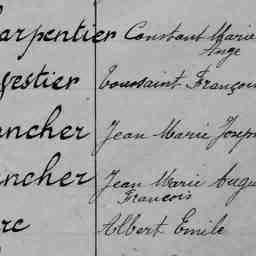 arpentier Constant Marie
Ange
gestier Toussaint François
ncher Jean Marie Joseph
ncher Jean Marie Augu
François
rc Albert Emile